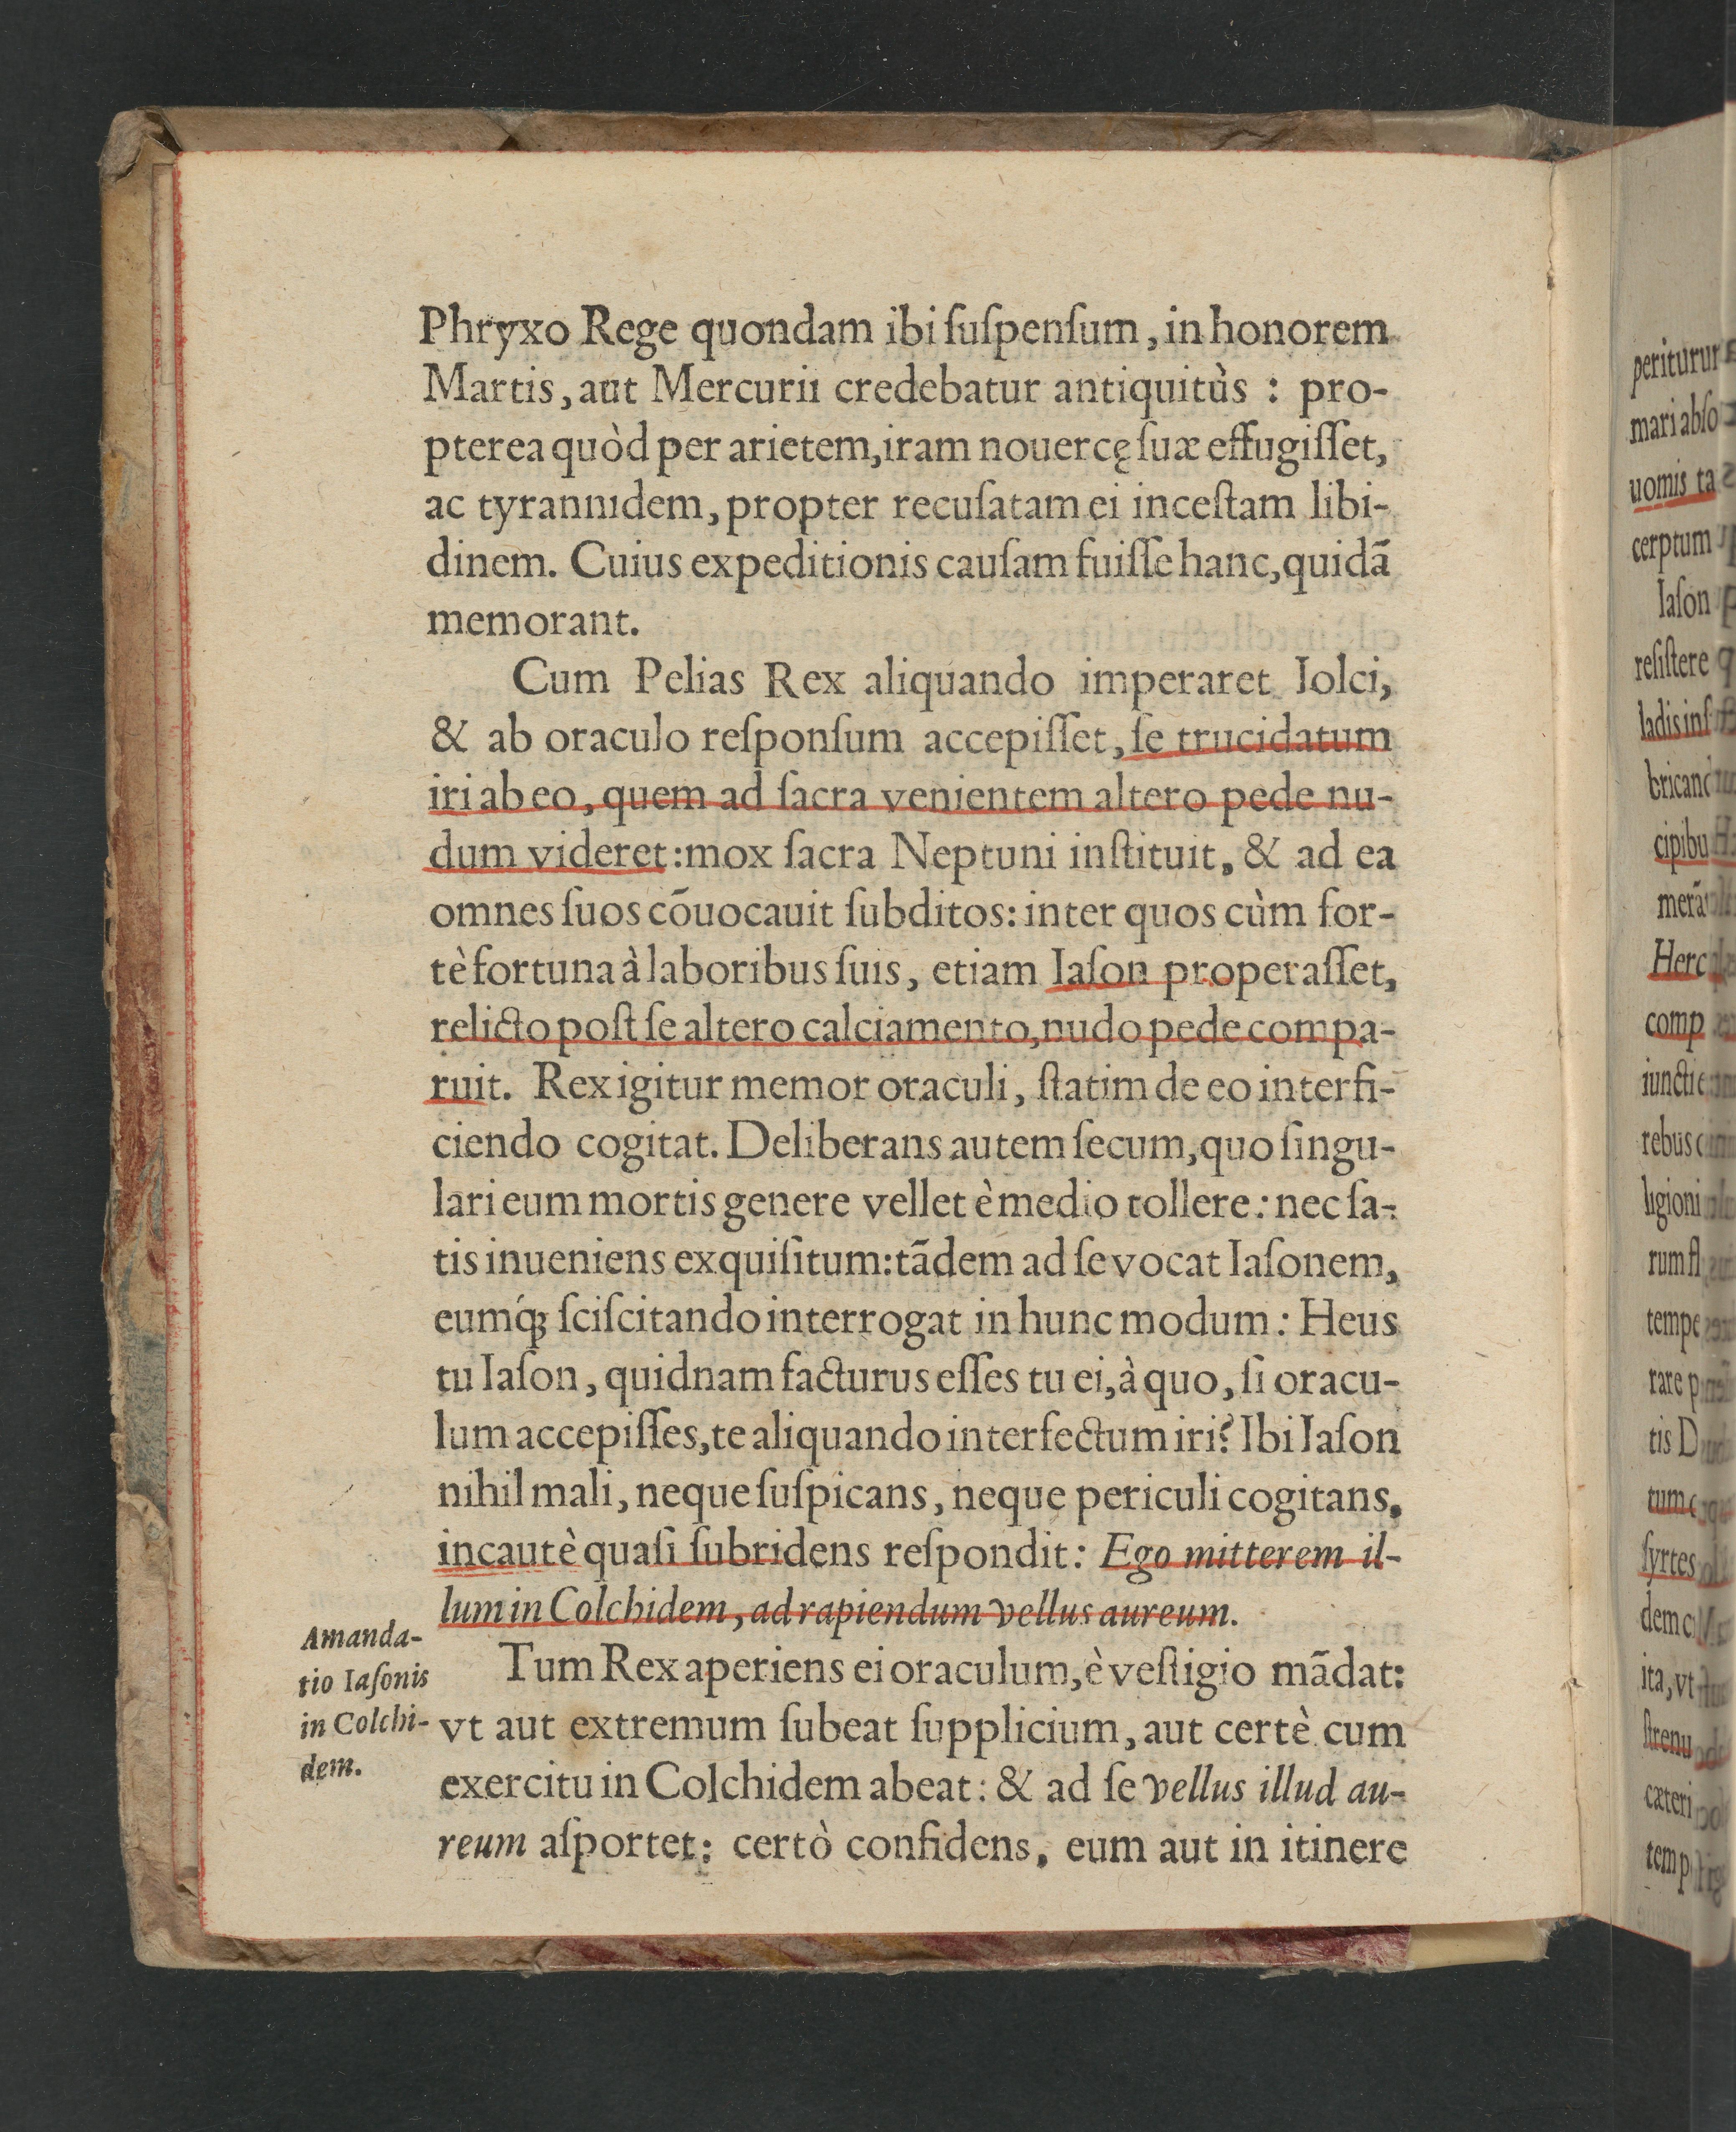 Phryxo Rege quondam ibi ſuſpenſum, in honorem
Martis, aut Mercurii credebatur antiquitùs : pro-
pterea quòd per arietem, iram nouercę ſuæ effugiſſet,
ac tyrannidem, propter recuſatam ei inceſtam libi-
dinem. Cuius expeditionis cauſam fuiſſe hanc, quidā
memorant.
Cum Pelias Rex aliquando imperaret Iolci,
& ab oraculo reſponſum accepiſſet, ſe trucidatum
iri ab eo, quem ad ſacra venientem altero pede nu-
dum videret: mox ſacra Neptuni inſtituit, & ad ea
omnes ſuos cōuocauit ſubditos: inter quos cùm for-
tè fortuna à laboribus ſuis, etiam Iaſon properaſſet,
relicto poſt ſe altero calciamento, nudo pede compa-
ruit. Rex igitur memor oraculi, ſtatim de eo interfi-
ciendo cogitat. Deliberans autem ſecum, quo ſingu-
lari eum mortis genere vellet è medio tollere: nec ſa-
tis inueniens exquiſitum: tādem ad ſe vocat Iaſonem,
eumq́ꝫ ſciſcitando interrogat in hunc modum: Heus
tu Iaſon, quidnam facturus eſſes tu ei, à quo, ſi oracu-
lum accepiſſes, te aliquando interfectum iri? Ibi Iaſon
nihil mali, neque ſuſpicans, neque periculi cogitans,
incautè quaſi ſubridens reſpondit: Ego mitterem il-
lum in Colchidem, ad rapiendum vellus aureum.
Amanda-
tio Iaſonis
in Colchi-
dem.
Tum Rex aperiens ei oraculum, è veſtigio mādat:
vt aut extremum ſubeat ſupplicium, aut certè cum
exercitu in Colchidem abeat: & ad ſe vellus illud au-
reum aſportet: certò confidens, eum aut in itinere
periturur
mari abſo
uomis ta
cerptum
Iaſon
reſiſtere
ladis inſ
bricand
cipibu
merā
Herc
comp
iuncti
rebus
ligioni
rum fl
tempe
rare p
tis D
tum
ſyrtes
dem
ita, vt
ſtrenu
cæteri
temp